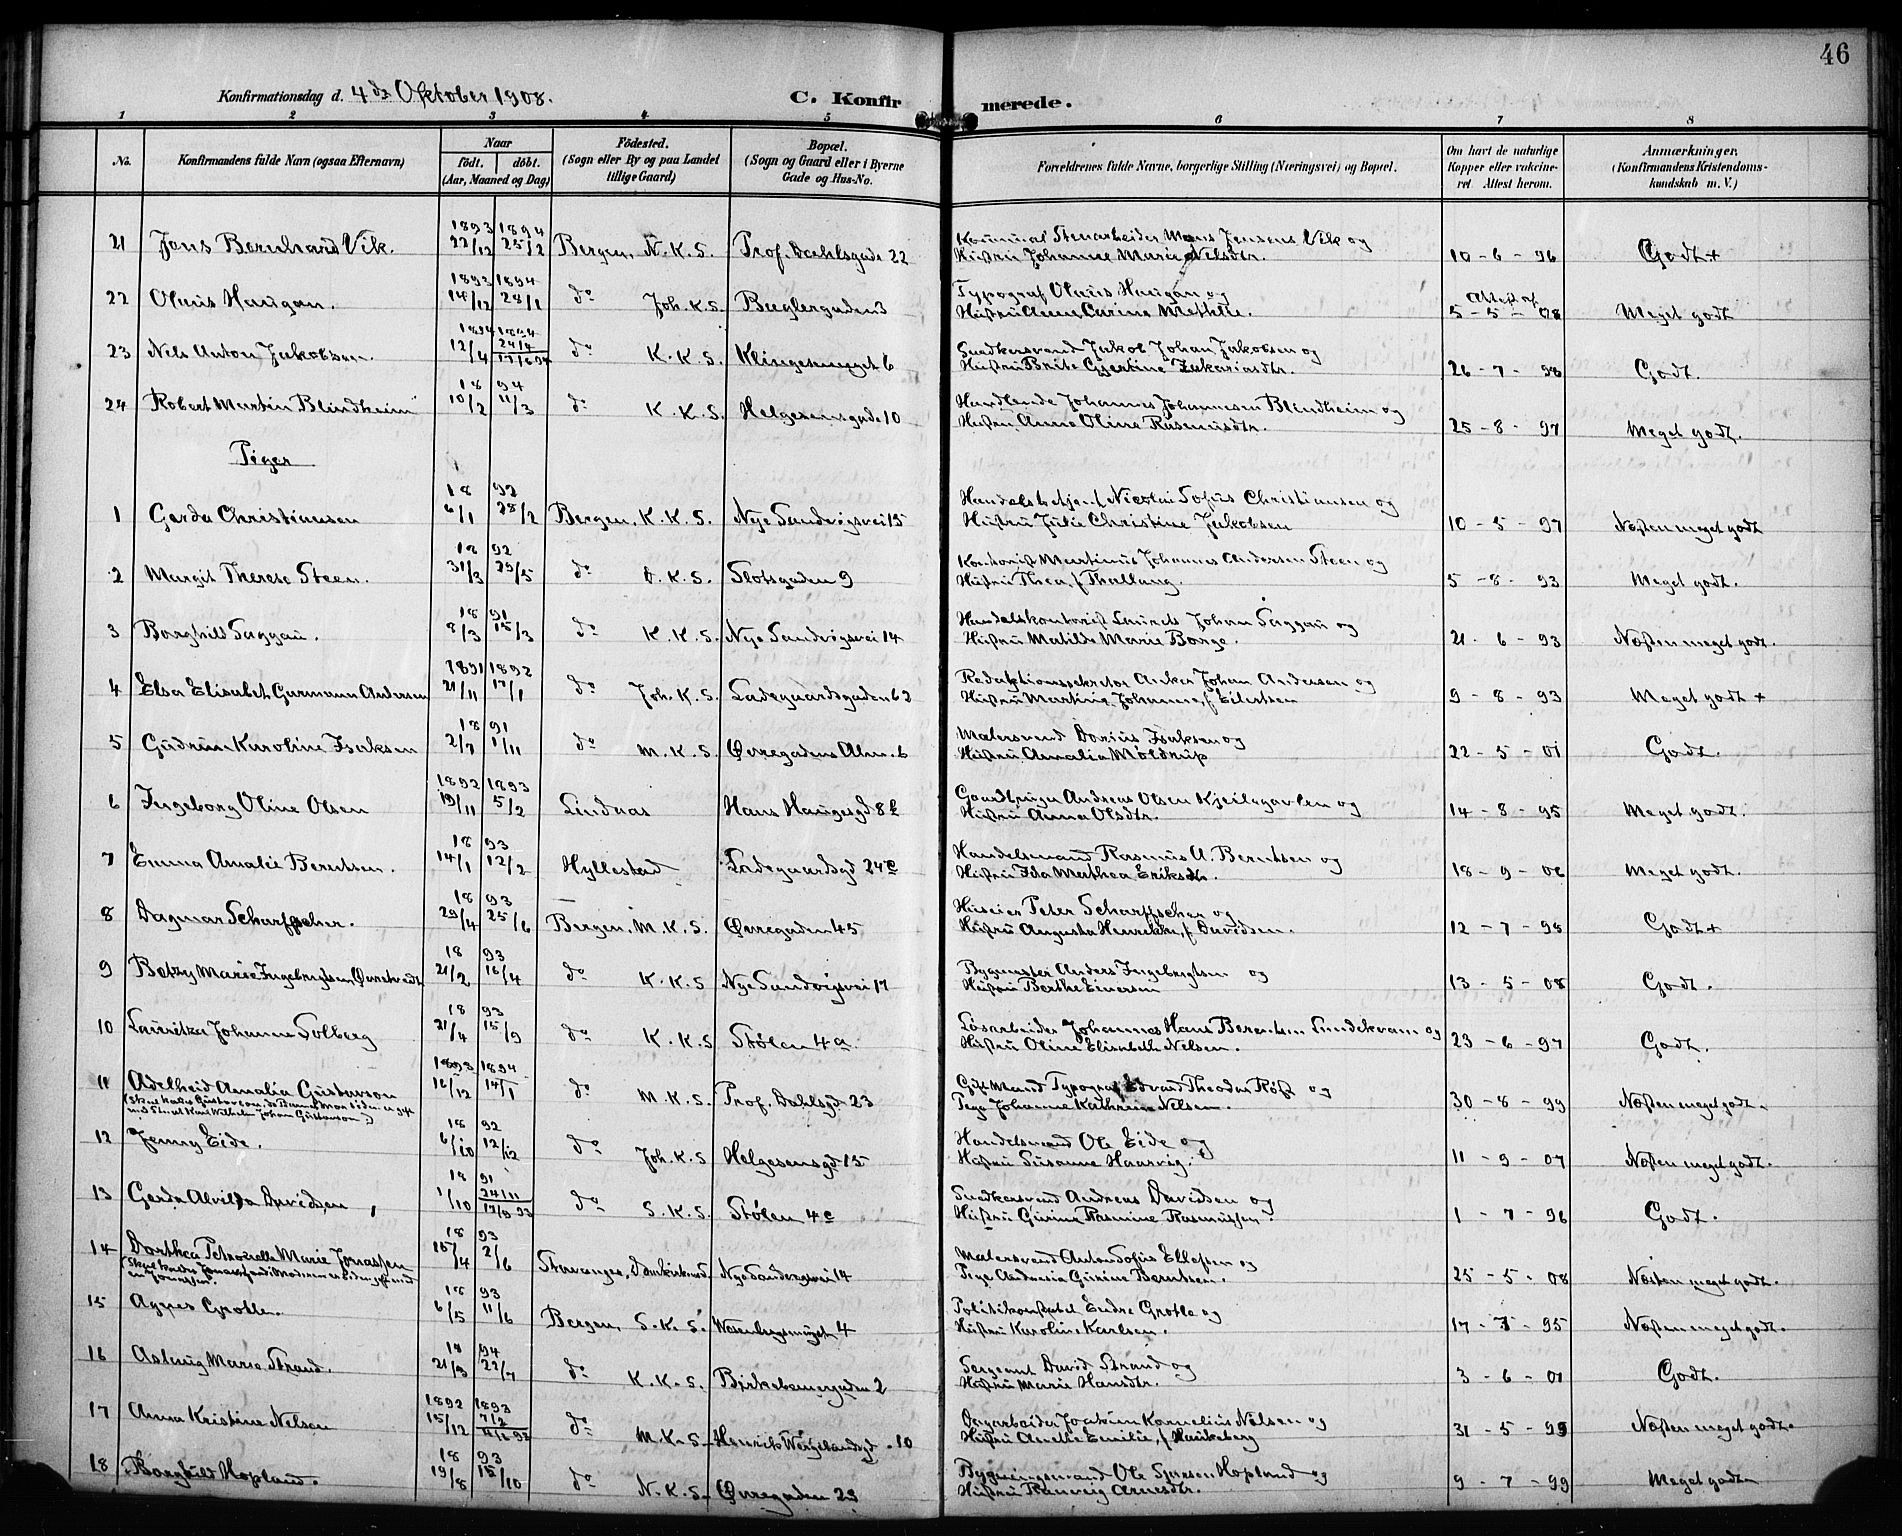 46
Konfirmationsdag d. 4de Oktober 1908.
C. Konfirmerede.
1 2 3 4 5 6 7 8
No. Konfirmandens fulde Navn (ogsaa Efternavn) Naar födt. döbt. (Aar, Maaned og Dag) Födested. (Sogn eller By og paa Landet tillige Gaard) Bopæl. (Sogn og Gaard eller i Byerne Gade og Hus-No. Forældrenes fulde Navne, borgerlige Stilling (Næringsvei) og Bopæl. Om havt de naturlige Kopper eller vakcineret Attest herom. Anmærkninger. (Konfirmandens Kristendomskundskab m. V.)
1893 1894
21 Jens Bernhard Vik. 22/12 25/2 Bergen, N.K.S. Prof. Dahlsgade 22 Kommunal Stenarbeider Mons Jensen Vik og
Hustru Johanne Marie Nelsdtr. 10-6-96 Godt +
1893 1894
22 Olaus Haugan. 14/12 28/1 do Joh.K.S. Baglergaden 3 Typograf Olaus Haugan og
Hustru Anna Carina Mathilie. Attest af 5-5-08 Meget godt
1894 1894
23 Nels Anton Jakobsen. 12/4 24/4 do K.K.S. Klingesmuget 6 Snedkersvend Jakob Johan Jakobsen og
Hustru Brite Gjertine Zakariasdtr. 26-7-98 Godt.
18 94
24 Robert Martin Blindheim 10/2 11/3 do K.K.S. Helgesensgade 10 Handlende Johannes Johannesen Blindheim og
Hustru Anna Oline Rasmusdtr. 25-8-97 Meget godt.
Piger
18 92
1 Gerda Christiansen 6/1 28/2 Bergen, K.K.S. Nye Sandvigsvei 15 Handelsbetjent Nicolai Sofus Christiansen og
Hustru Julie Christine Jakobsen 10-5-97 Næsten meget godt
18 92
2 Margit Therese Steen. 31/3 29/5 do D.K.S. Slotsgaden 9 Kontorist Martinus Johannes Andersen Steen og
Hustru Thea, f. Thallaug. 5-8-93 Meget godt.
18 91
3 Borghild Saggau. 8/3 15/3 do K.K.S. Nye Sandvigsvei 14 Handelskontorist Laurits Johan Saggau og
Hustru Matilde Marie Borge. 21-6-93 Næsten meget godt.
1891 1892
4 Elsa Elisabet Garmann Andersen 21/11 17/1 do Joh.K.S. Ladegaardsgaden 62 Redaktionssekretær Anker Johan Andersen og
Hustru Martine Johanne, f. Eilertsen 9-8-93 Meget godt +
18 91
5 Gudrun Karoline Isaksen 2/7 1/11 do M.K.S. Øvregadens Alm. 6 Malersvend Darius Isaksen og
Hustru Amalia Moldrup 22-5-01 Godt.
1892 1893
6 Ingeborg Oline Olsen 19/11 5/2 Lindaas Hans Haugesgd 8b Gaardbruger Andreas Olsen Kjeilegavlen og
Hustru Anna Olsdtr. 14-8-95 Meget godt.
18 93
7 Emma Amalie Berntsen. 14/1 12/2 Hyllestad Ladegaardsgd 24c Handelsmand Rasmus A. Berntsen og
Hustru Ida Mathea Eriksdtr. 18-9-06 Meget godt.
18 93
8 Dagmar Scharffscher. 29/4 25/6 Bergen, M.K.S. Øvregaden 45 Huseier Peter Scharffscher og
Hustru Augusta Henrikke, f. Davidsen. 12-7-98 Godt +
18 93
9 Betzy Marie Ingebrigtsen Øvretvedt 21/2 16/4 do K.K.S Nye Sandvigsvei 17 Bygmester Anders Ingebrigtsen og
Hustru Berthe Einersen 13-5-08 Godt.
18 93
10 Lauritza Johanne Solberg 21/4 15/9 do K.K.S Stølen 4a. Løsarbeider Johannes Hans Berentsen Lundekvam og
Hustru Oline Elisabeth Nelsen. 23-6-97 Godt.
1893 1894
11 Adelheid Amalia Gustavson 16/12 14/1 do M.K.S. Prof. Dahlsgd 23 Gift Mand Typograf Edvard Theodor Røst og
(Skal kaldes Gustavson, da Barnets Mor siden er gift
med Stuert Karl Wilhelm Johan Gustavson.) Pige Johanne Kathrine Nelsen. 30-8-99 Næsten meget godt.
18 92
12 Jenny Eide. 6/10 12/12 do Joh.K.S Helgesensgd 15 Handelsmand Ole Eide og
Hustru Susanne Haarvig. 11-9-07 Næsten meget godt.
18 91
13 Gerda Alvilda Davidsen 1/10 24/11 do S.K.S. Stølen 4c Snedkersvend Andreas Davidsen og
Hustru Gurine Rasmine Rasmussen. 1-7-96 Godt.
18 93
14 Dorthea Petronelle Marie Jonassen 15/4 2/6 Stavanger, Domkirkens S. Nye Sandvigsvei 14 Malersvend Anton Sofus Ellefsen og
Pige Andrasia Gurine Berntsen. 25-5-08 Næsten meget godt.
18 93
15 Agnes Grotle. 6/5 11/6 Bergen, S.K.S. Wesenbergsmuget 4 Politikonstabel Endre Grotle og
Hustru Karoline Karlsen. 17-7-95 Næsten meget godt.
18 94
16 Aslaug Marie Strand. 21/3 22/7 do K.K.S. Birkebeinergaden 2 Sergeant David Strand og
Hustru Marie Hansdtr. 3-6-01 Godt.
1892 1893
17 Anna Kristine Nelsen 15/12 7/2 do M.K.S. Henrik Wergelandsgd. 10 Dagarbeider Joakim Kornelius Nelsen og
Hustru Anethe Emilie, f. Haukeberg 31-5-99 Næsten meget godt.
18 93
18 Borghild Hopland. 19/8 15/10 do N.K.S. Øvregaden 23 Bygningsmand Ole Hopland og
Hustru Ranveig Arnesdtr. 9-7-99 Meget godt